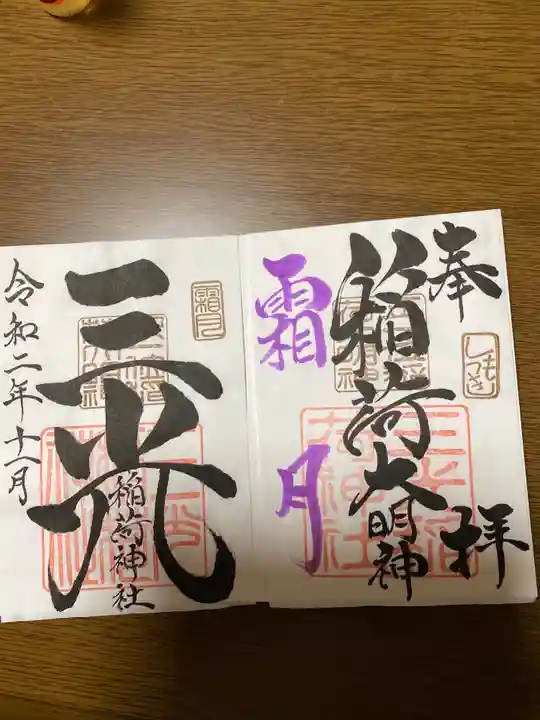 奉拝
しもつき
稲荷大明神
霜月
霜月
三光
稲荷神社
令和二年十一月